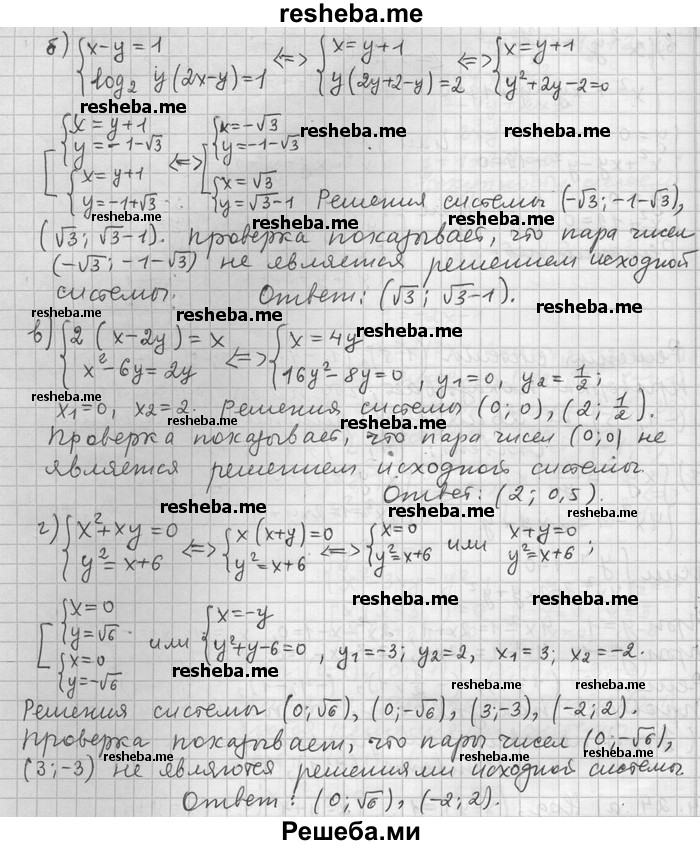 resheba.me
б) { x-y=1 <=> { x=y+1 <=> { x=y+1
{ log₂ y(2x-y)=1 { y(2y+2-y)=2 { y²+2y-2=0
resheba.me resheba.me resheba.me
[ { x=y+1 <=> [ { x=-√3
{ y=-1-√3 { y=-1-√3
{ x=y+1 { x=√3
{ y=-1+√3 { y=√3-1 Решения системы (-√3; -1-√3),
resheba.me resheba.me resheba.me
(√3; √3-1). Проверка показывает, что пара чисел
resheba.me resheba.me
(-√3; -1-√3) не является решением исходной
системы. Ответ: (√3; √3-1).
resheba.me resheba.me resheba.me
в) { 2(x-2y)=x <=> { x=4y
{ x²-6y=2y { 16y²-8y=0, y₁=0, y₂=1/2;
resheba.me resheba.me resheba.me
x₁=0, x₂=2. Решения системы (0;0), (2; 1/2).
Проверка показывает, что пара чисел (0;0) не
является решением исходной системы.
Ответ: (2; 0,5).
resheba.me resheba.me resheba.me
г) { x²+xy=0 <=> { x(x+y)=0 <=> { x=0 или x+y=0
{ y²=x+6 { y²=x+6 { y²=x+6 y²=x+6;
resheba.me resheba.me
[ { x=0 или { x=-y
{ y=√6 { y²+y-6=0, y₁=-3; y₂=2, x₁=3; x₂=-2.
{ x=0
{ y=-√6
resheba.me resheba.me resheba.me
Решения системы (0;√6), (0;-√6), (3;-3), (-2;2).
Проверка показывает, что пары чисел (0;-√6),
resheba.me resheba.me
(3;-3) не являются решениями исходной системы
Ответ: (0;√6), (-2;2).
Решеба.ми